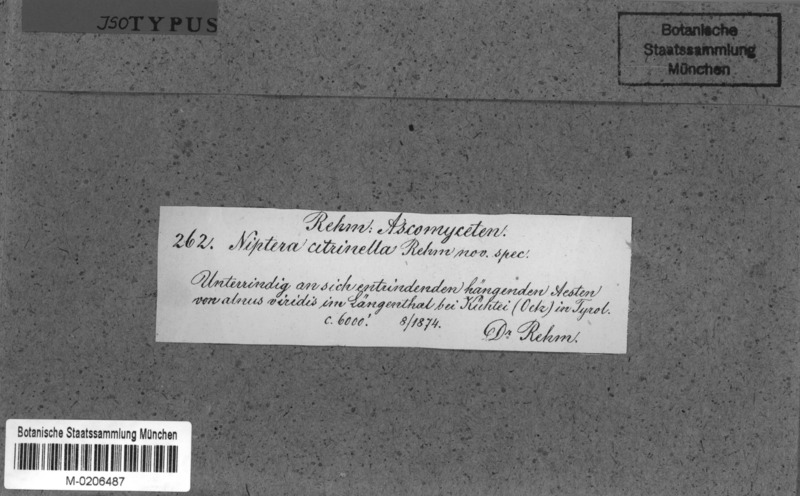 ISOTYPUS
Botanische
Staatssammlung
München
Rehm: Ascomyceten.
262. Niptera citrinella Rehm nov. spec.
Unterrindig an sich entrindenden hängenden Aesten
von alnus viridis im Längenthal bei Kühtei (Oetz) in Tyrol.
c. 6000'. 8/1874.
Dr Rehm.
Botanische Staatssammlung München
M-0206487